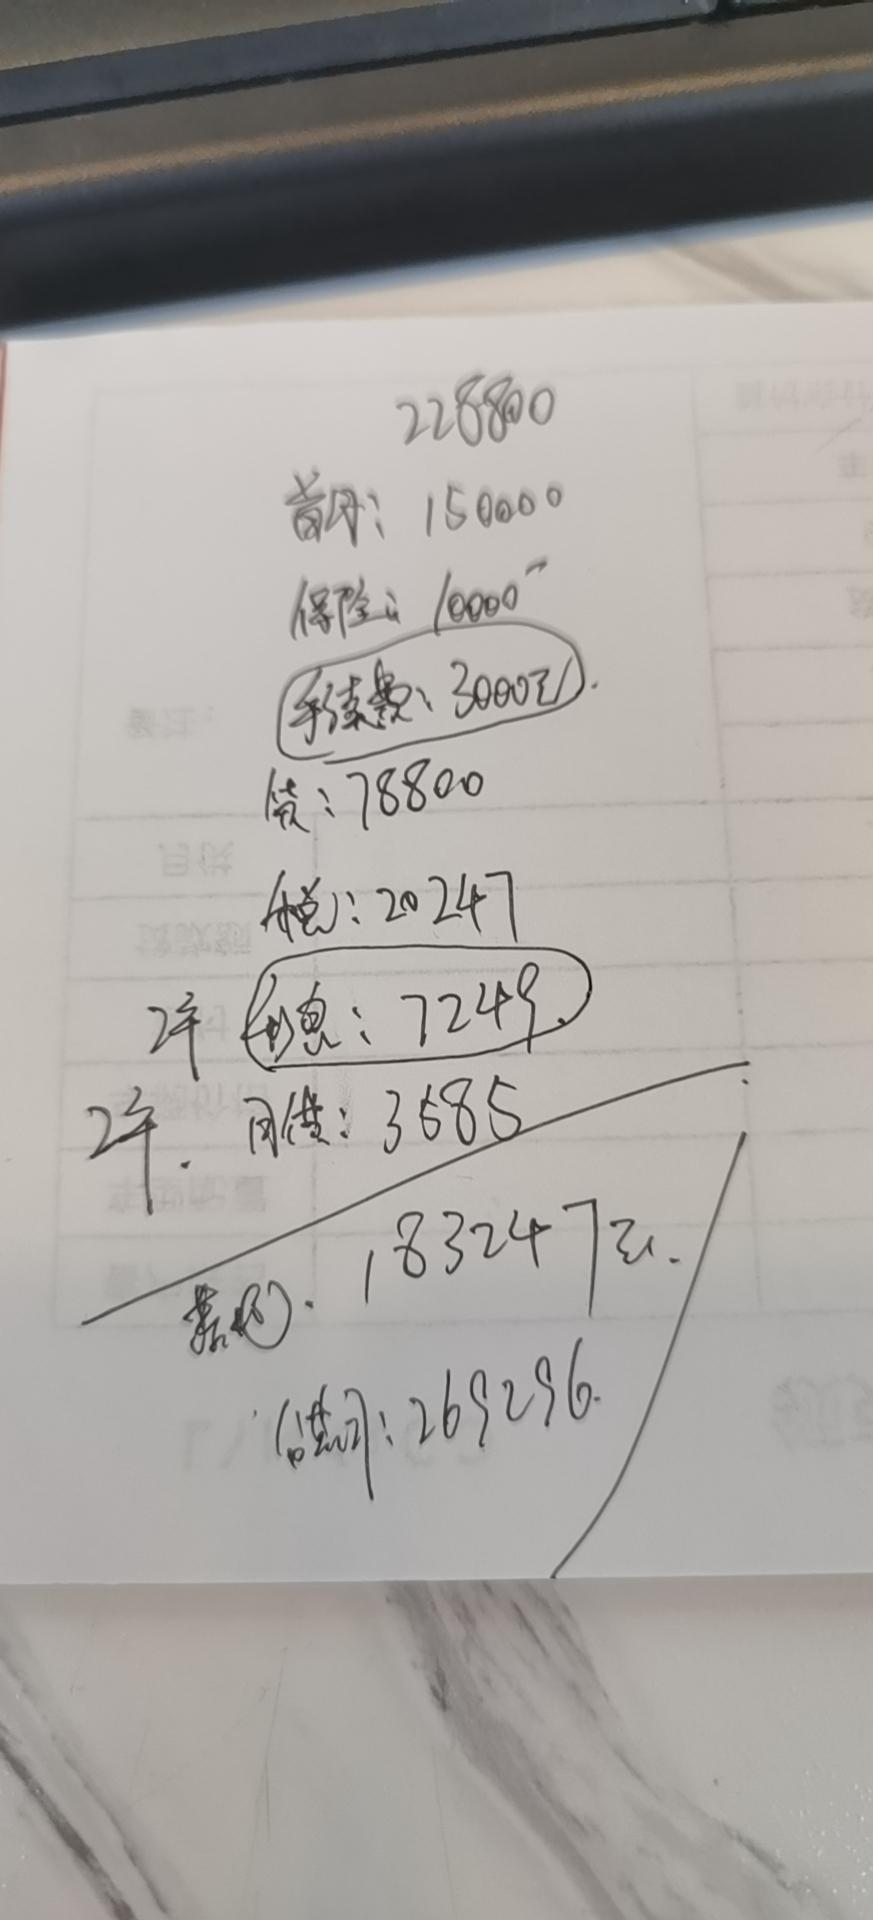 228800
首付: 150000
保险: 10000
手续费: 3000元.
贷: 78800
税: 20247
2年 利息: 7249.
2年. 月供: 3585
落地. 183247元.
269296.